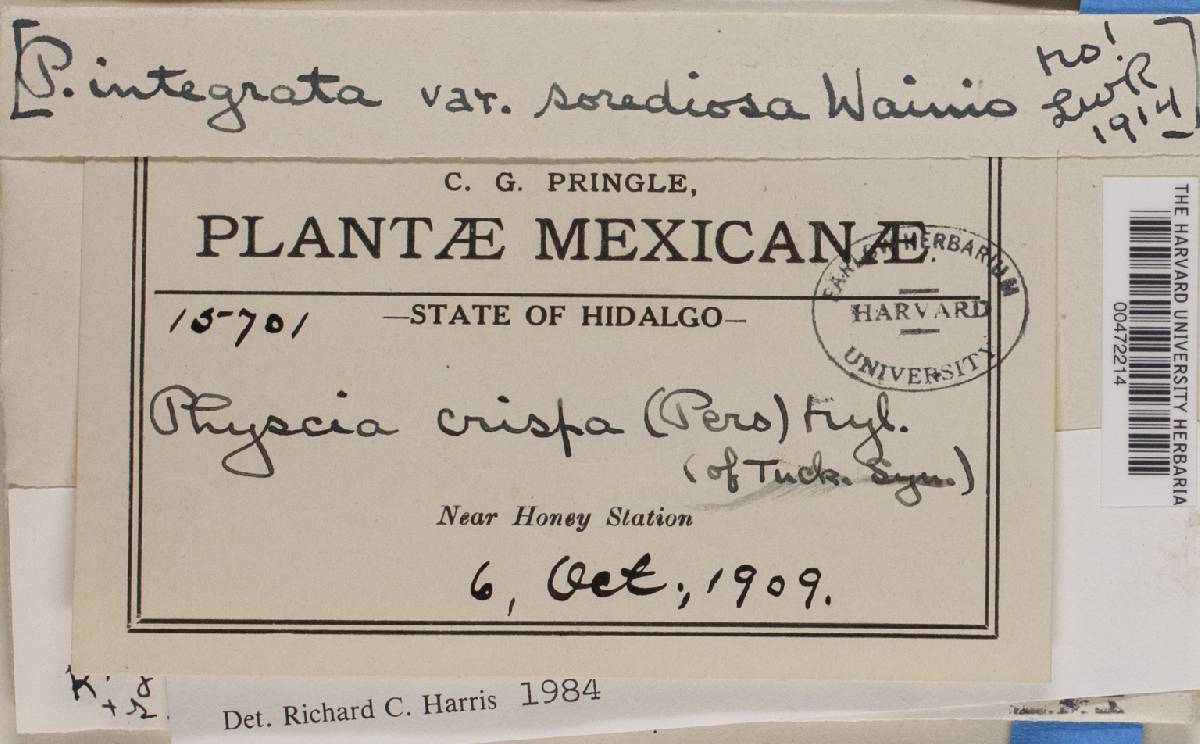 [P. integrata var. sorediosa Wainio no! LWR 1914]
C. G. PRINGLE,
PLANTÆ MEXICANÆ.
15701
—STATE OF HIDALGO—
FARLOW HERBARIUM
HARVARD
UNIVERSITY
Physcia crispa (Pers) Nyl.
(of Tuck. Syn.)
Near Honey Station
6, Oct., 1909.
Det. Richard C. Harris 1984
THE HARVARD UNIVERSITY HERBARIA
00472214